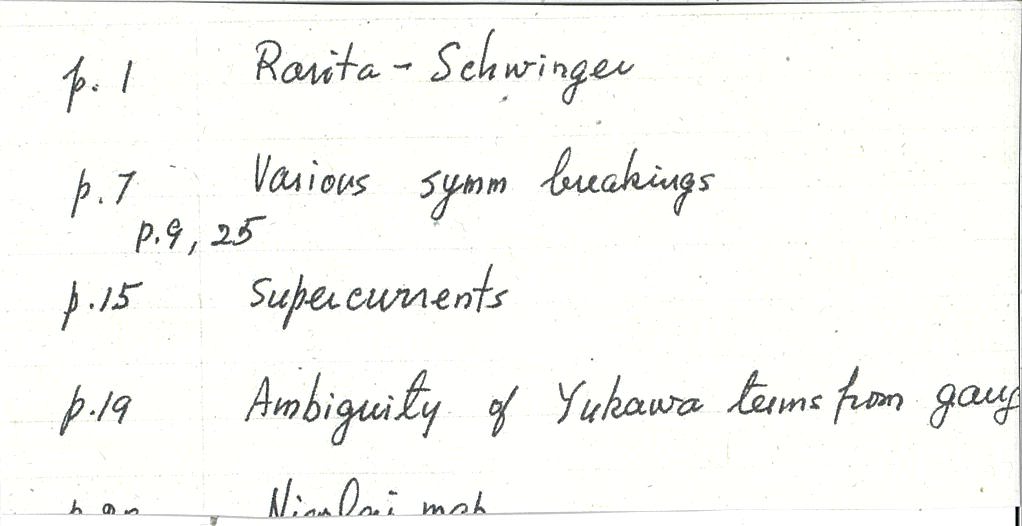 p. 1 Rarita - Schwinger
p. 7 Various symm breakings
p. 9, 25
p. 15 Supercurrents
p. 19 Ambiguity of Yukawa terms from gaug
Nicolai map